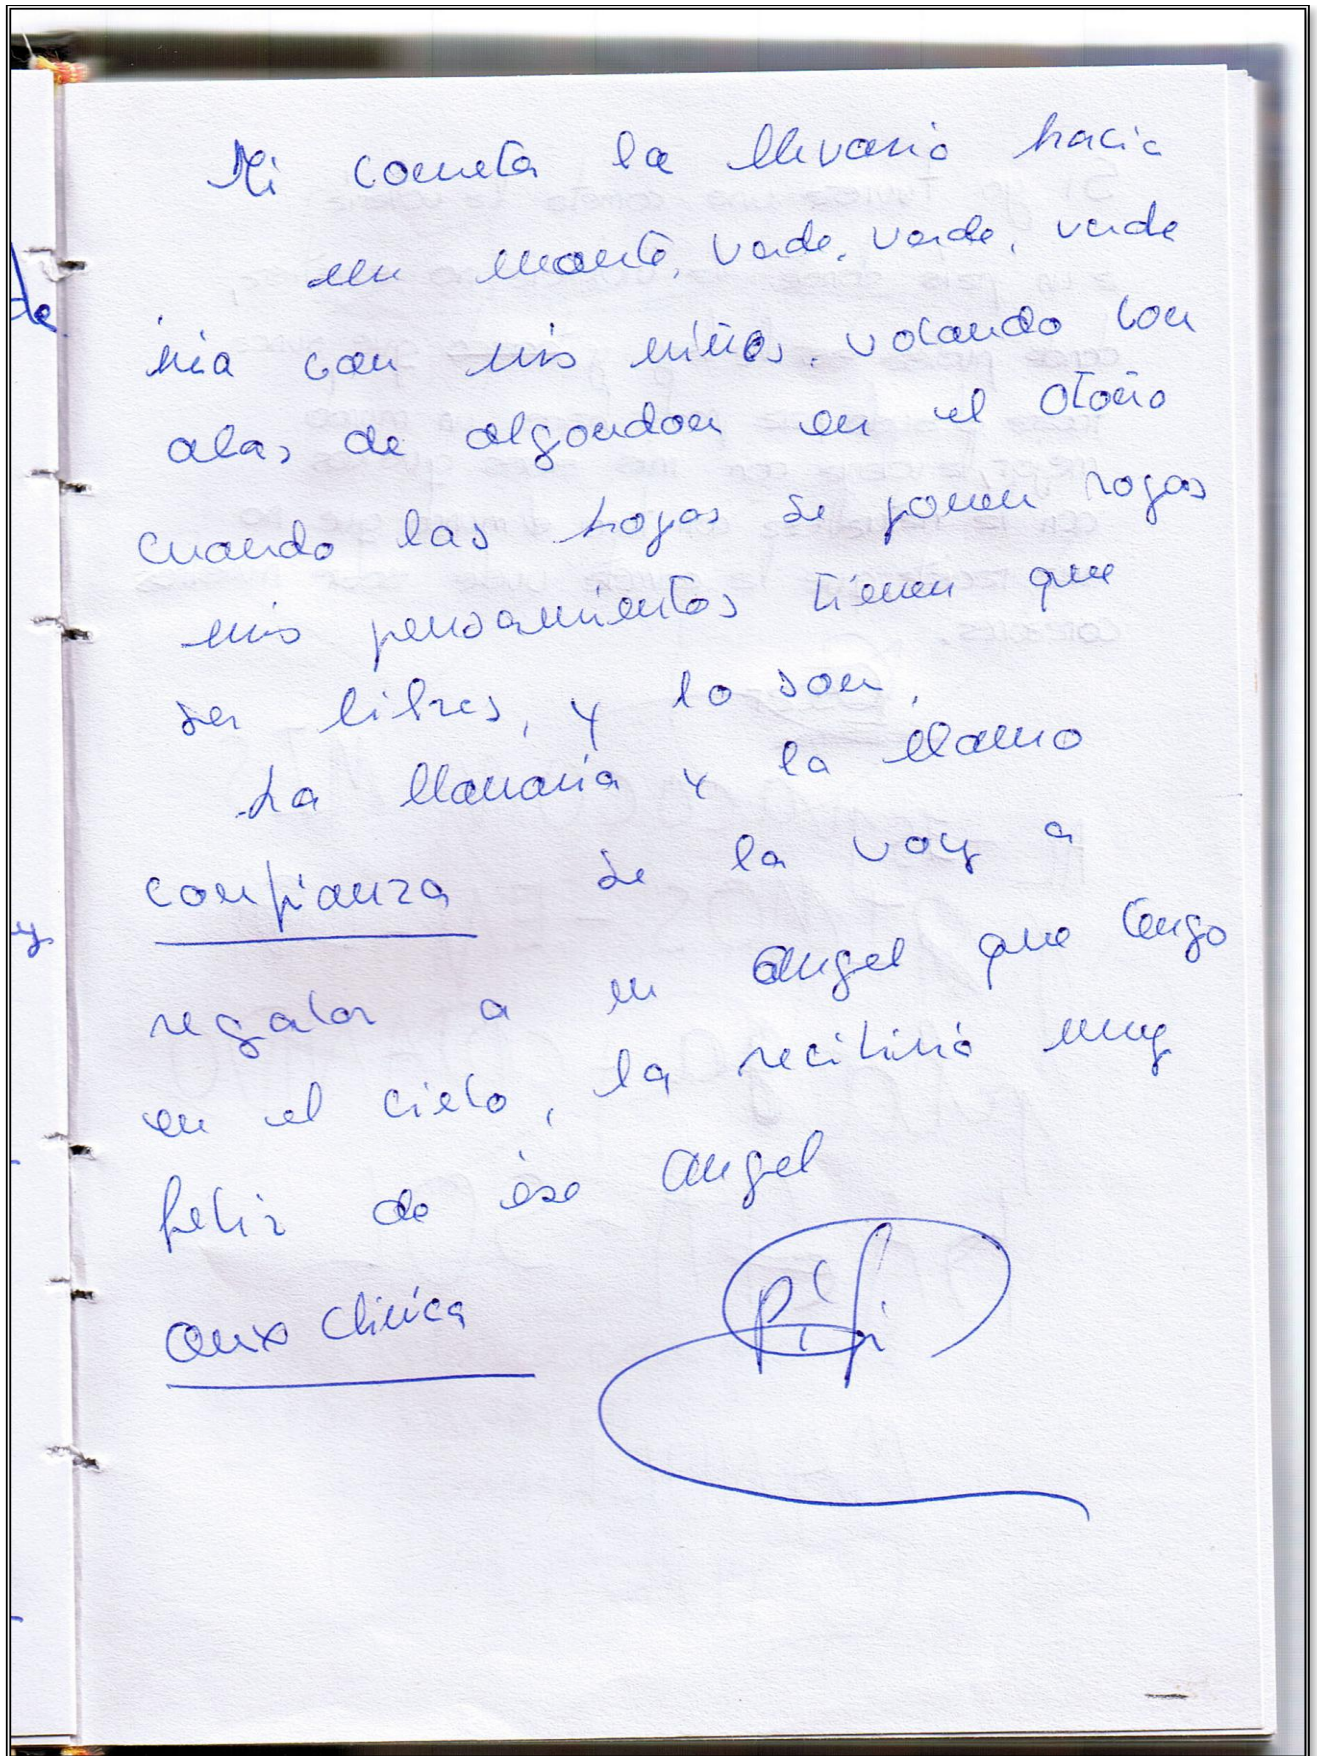 Mi cometa la llevaria hacia
un monte, verde, verde, verde
iria con mis niños, volando con
alas de algondon en el otoño
cuando las hogas se ponen rogas
mis pensamientos tienen que
ser libres, y lo son.
La llamaria y la llamo
confianza se la voy a
regalar a un angel que tengo
en el cielo, la recibirá muy
feliz de ése angel
aux clinica
Pili
de
y